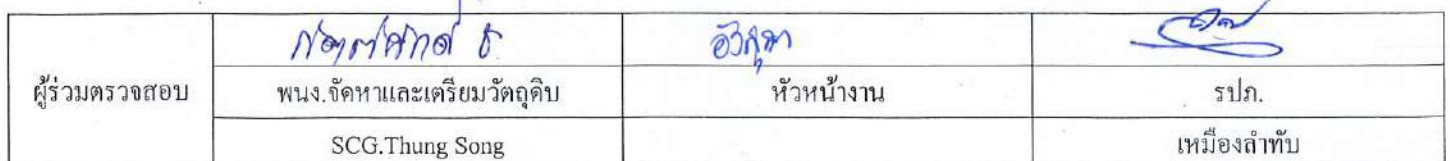 ผู้ร่วมตรวจสอบ
พนง.จัดหาและเตรียมวัตถุดิบ หัวหน้างาน รปภ.
SCG.Thung Song เหมืองลำทับ